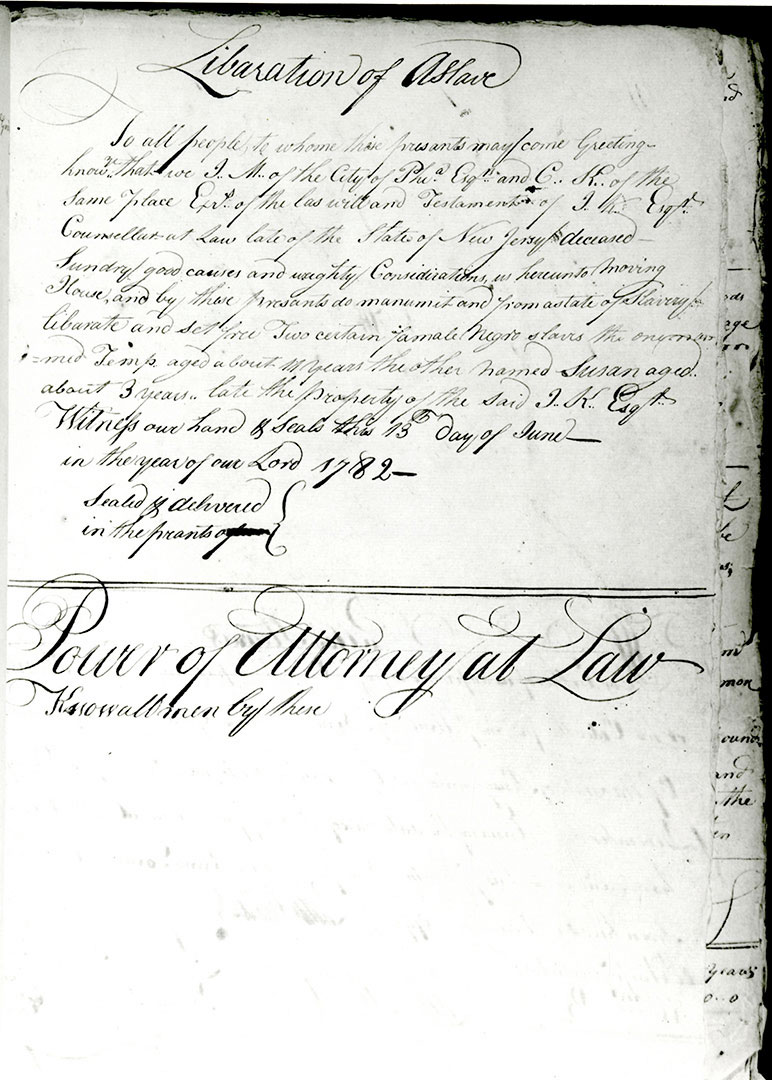 Libaration of a Slave
To all people to whome these presants may come Greeting–
know ye that we J. M. of the City of Phia. Esqr. and C. K. of the
Same place Exrs. of the las will and Testament of J. K. Esqr.
Counsellor at Law late of the State of New Jersy deceased–
Sundry good causes and waghty Considirations us hereunto moving
House, and by these presants do manumit and from a state of Slavery
libarate and set free Two certain famale Negro slaves the one
=med Temp. aged about years the other named Susan aged
about 3 years.. late the property of the said J. K. Esqr.
Witness our hand & Seals this 13th Day of June–
in the year of our Lord 1782–
Sealed & delivered
in the prants of
Power of Attorney at Law
Know all men by these
nd
mon
ound
and
the
en
years